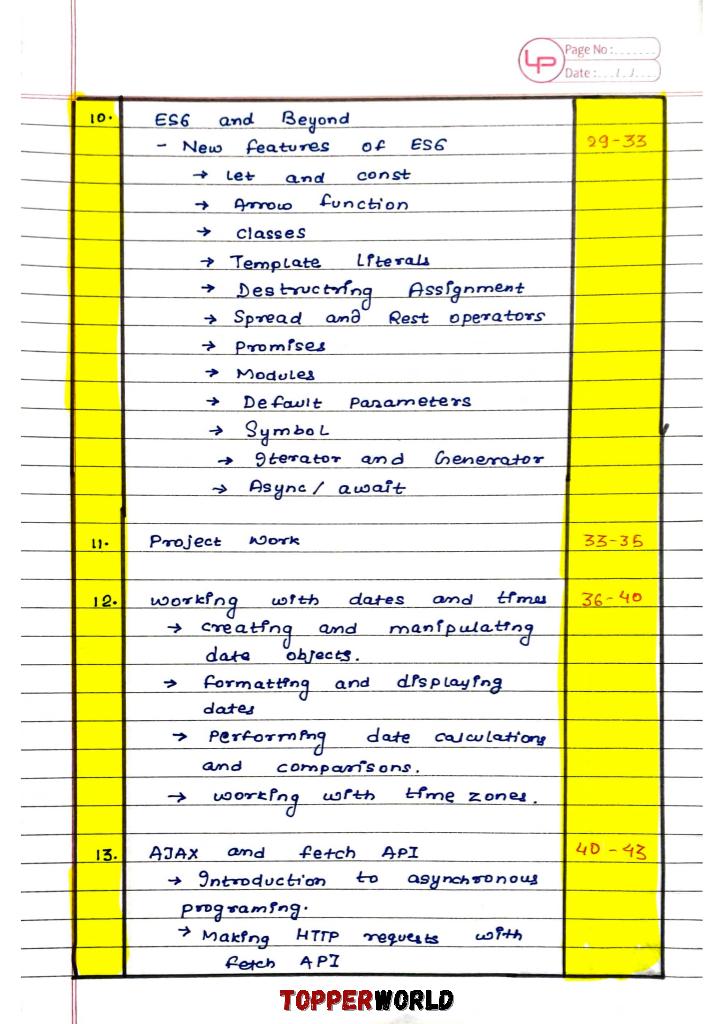 LP
Page No :.......
Date :.../.../...
10. ES6 and Beyond
- New features of ES6 29-33
→ Let and const
→ Arrow function
→ classes
→ Template Literals
→ Destructring Assignment
→ Spread and Rest operators
→ Promises
→ Modules
→ Default Parameters
→ Symbol
→ Iterator and Generator
→ Async / await
11. Project Work 33-35
12. working with dates and times 36-40
→ creating and manipulating
date objects.
→ formatting and displaying
dates
→ Performing date calculations
and comparisons.
→ working with time zones.
13. AJAX and fetch API 40-43
→ Introduction to asynchronous
programing.
→ Making HTTP requests with
fetch API
TOPPERWORLD